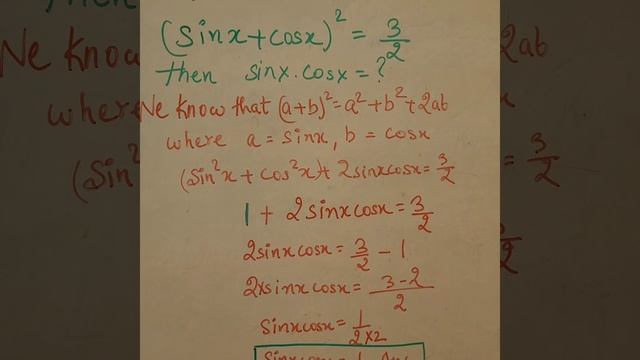 (sinx+cosx)² = 3/2
then sinx.cosx = ?
We know that (a+b)² = a²+b²+2ab
where a = sinx, b = cosx
(sin²x + cos²x)+ 2sinxcosx = 3/2
1 + 2sinxcosx = 3/2
2sinxcosx = 3/2 - 1
2xsinxcosx = 3-2/2
sinxcosx = 1/2x2